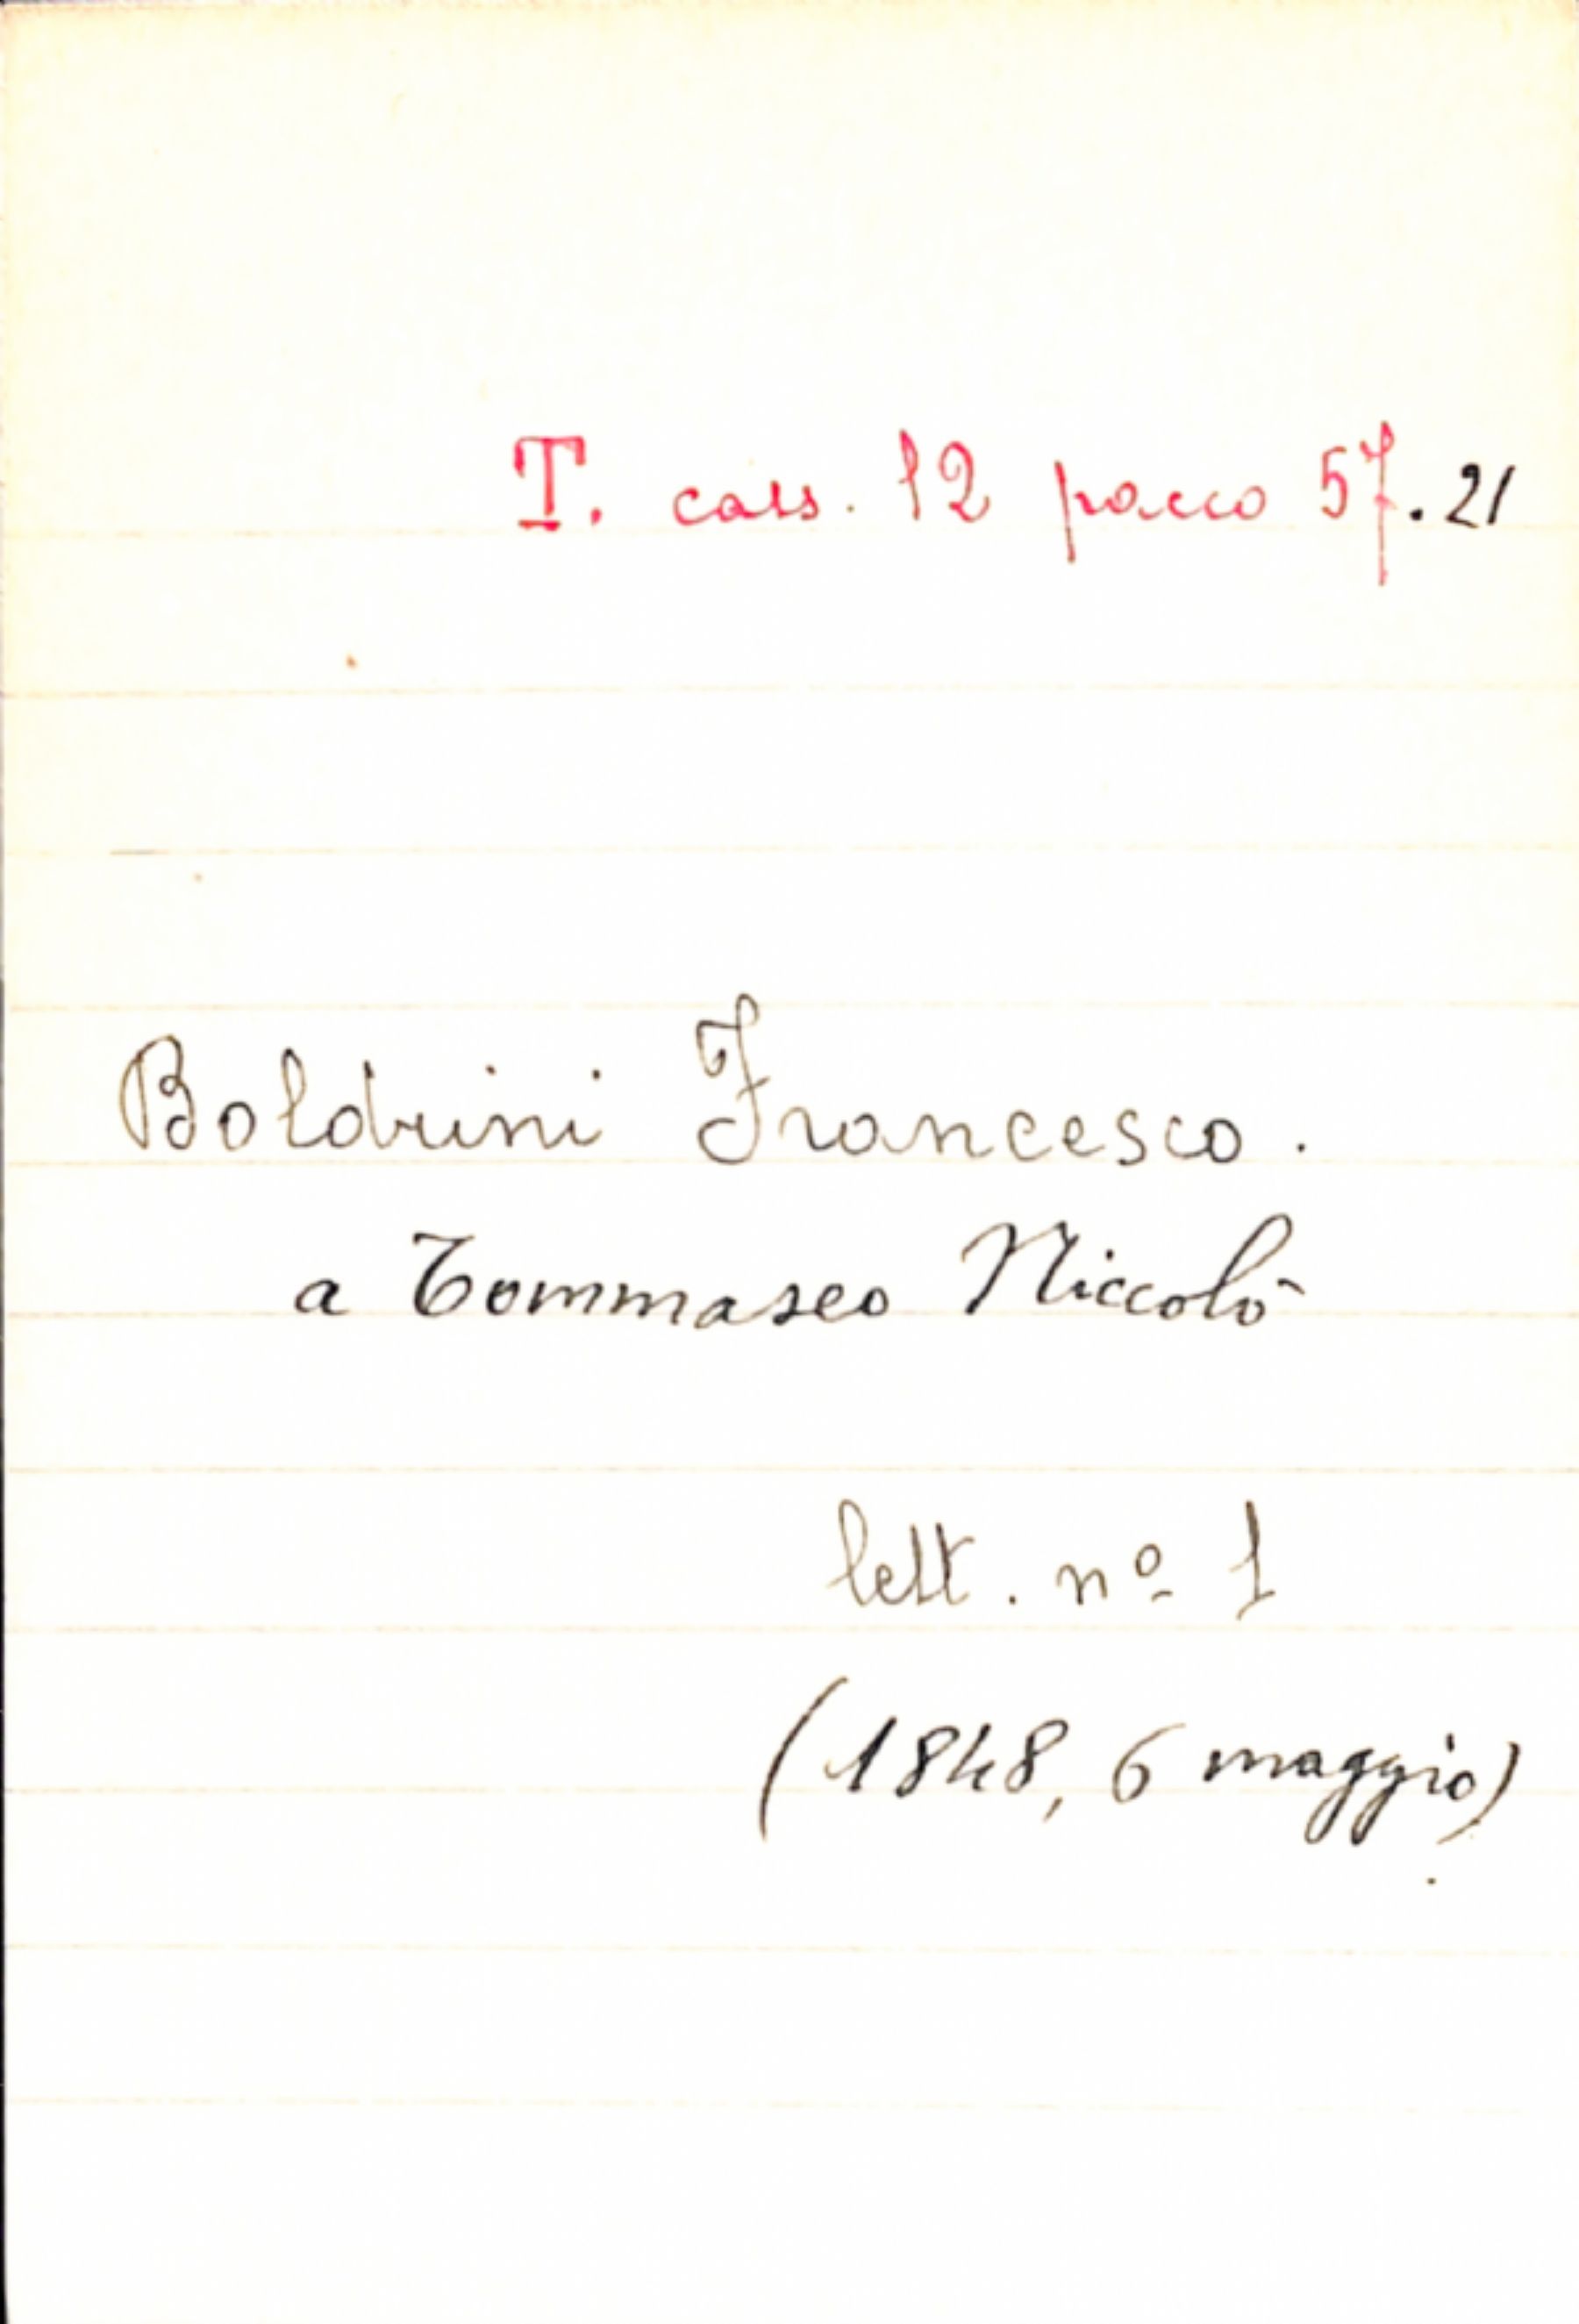 T. cass. 12 pacco 57.21
Boldrini Francesco.
a Tommaseo Niccolò
lett. nº 1
(1848, 6 maggio)